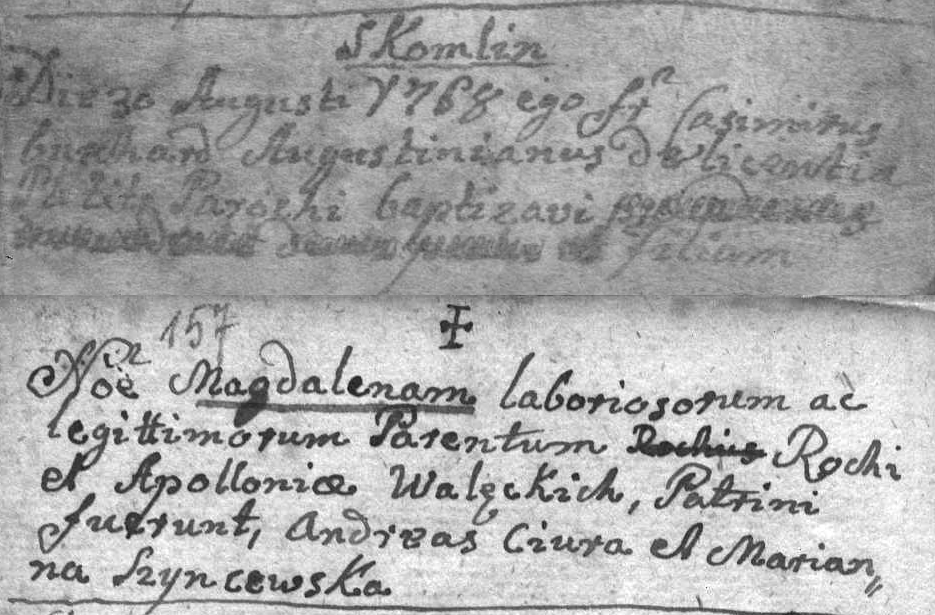 Skomlin
Die 30 Augusti 1768 ego fr Casimirus
Augustinianus de licentia
Parochi baptizavi
filium
157
Noe Magdalenam laboriosorum ac
legittimorum Parentum Rochius Rochi
et Apolloniæ Walęckich, Patrini
fuerunt, Andreas Ciura et Marian„
na Szyncewska